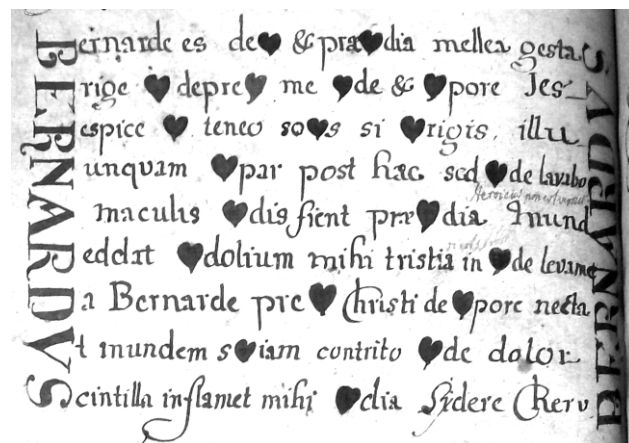 Bernarde es de♥ & præ♥dia mellea gestaS
Erige ♥ depre♥ me ♥de & ♥pore Jes_V
Respice ♥ teneo so♥s si ♥rigis, illuD
Nunquam ♥par post hac sed ♥de lavaboR
A maculis ♥dis fient præ♥dia mundA
Reddat ♥dolium mihi tristia in ♥de levameN
Da Bernarde pre♥ Christi de ♥pore nectaR
Vt mundem s♥iam contrito ♥de dolorE
Scintilla inflamet mihi ♥dia sidere CheruB